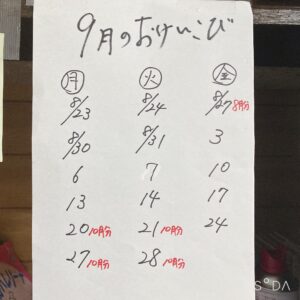 9月のおけいこび
月 火 金
8/23 8/24 8/27 8月分
8/30 8/31 3
6 7 10
13 14 17
20 10月分 21 10月分 24
27 10月分 28 10月分
SODA